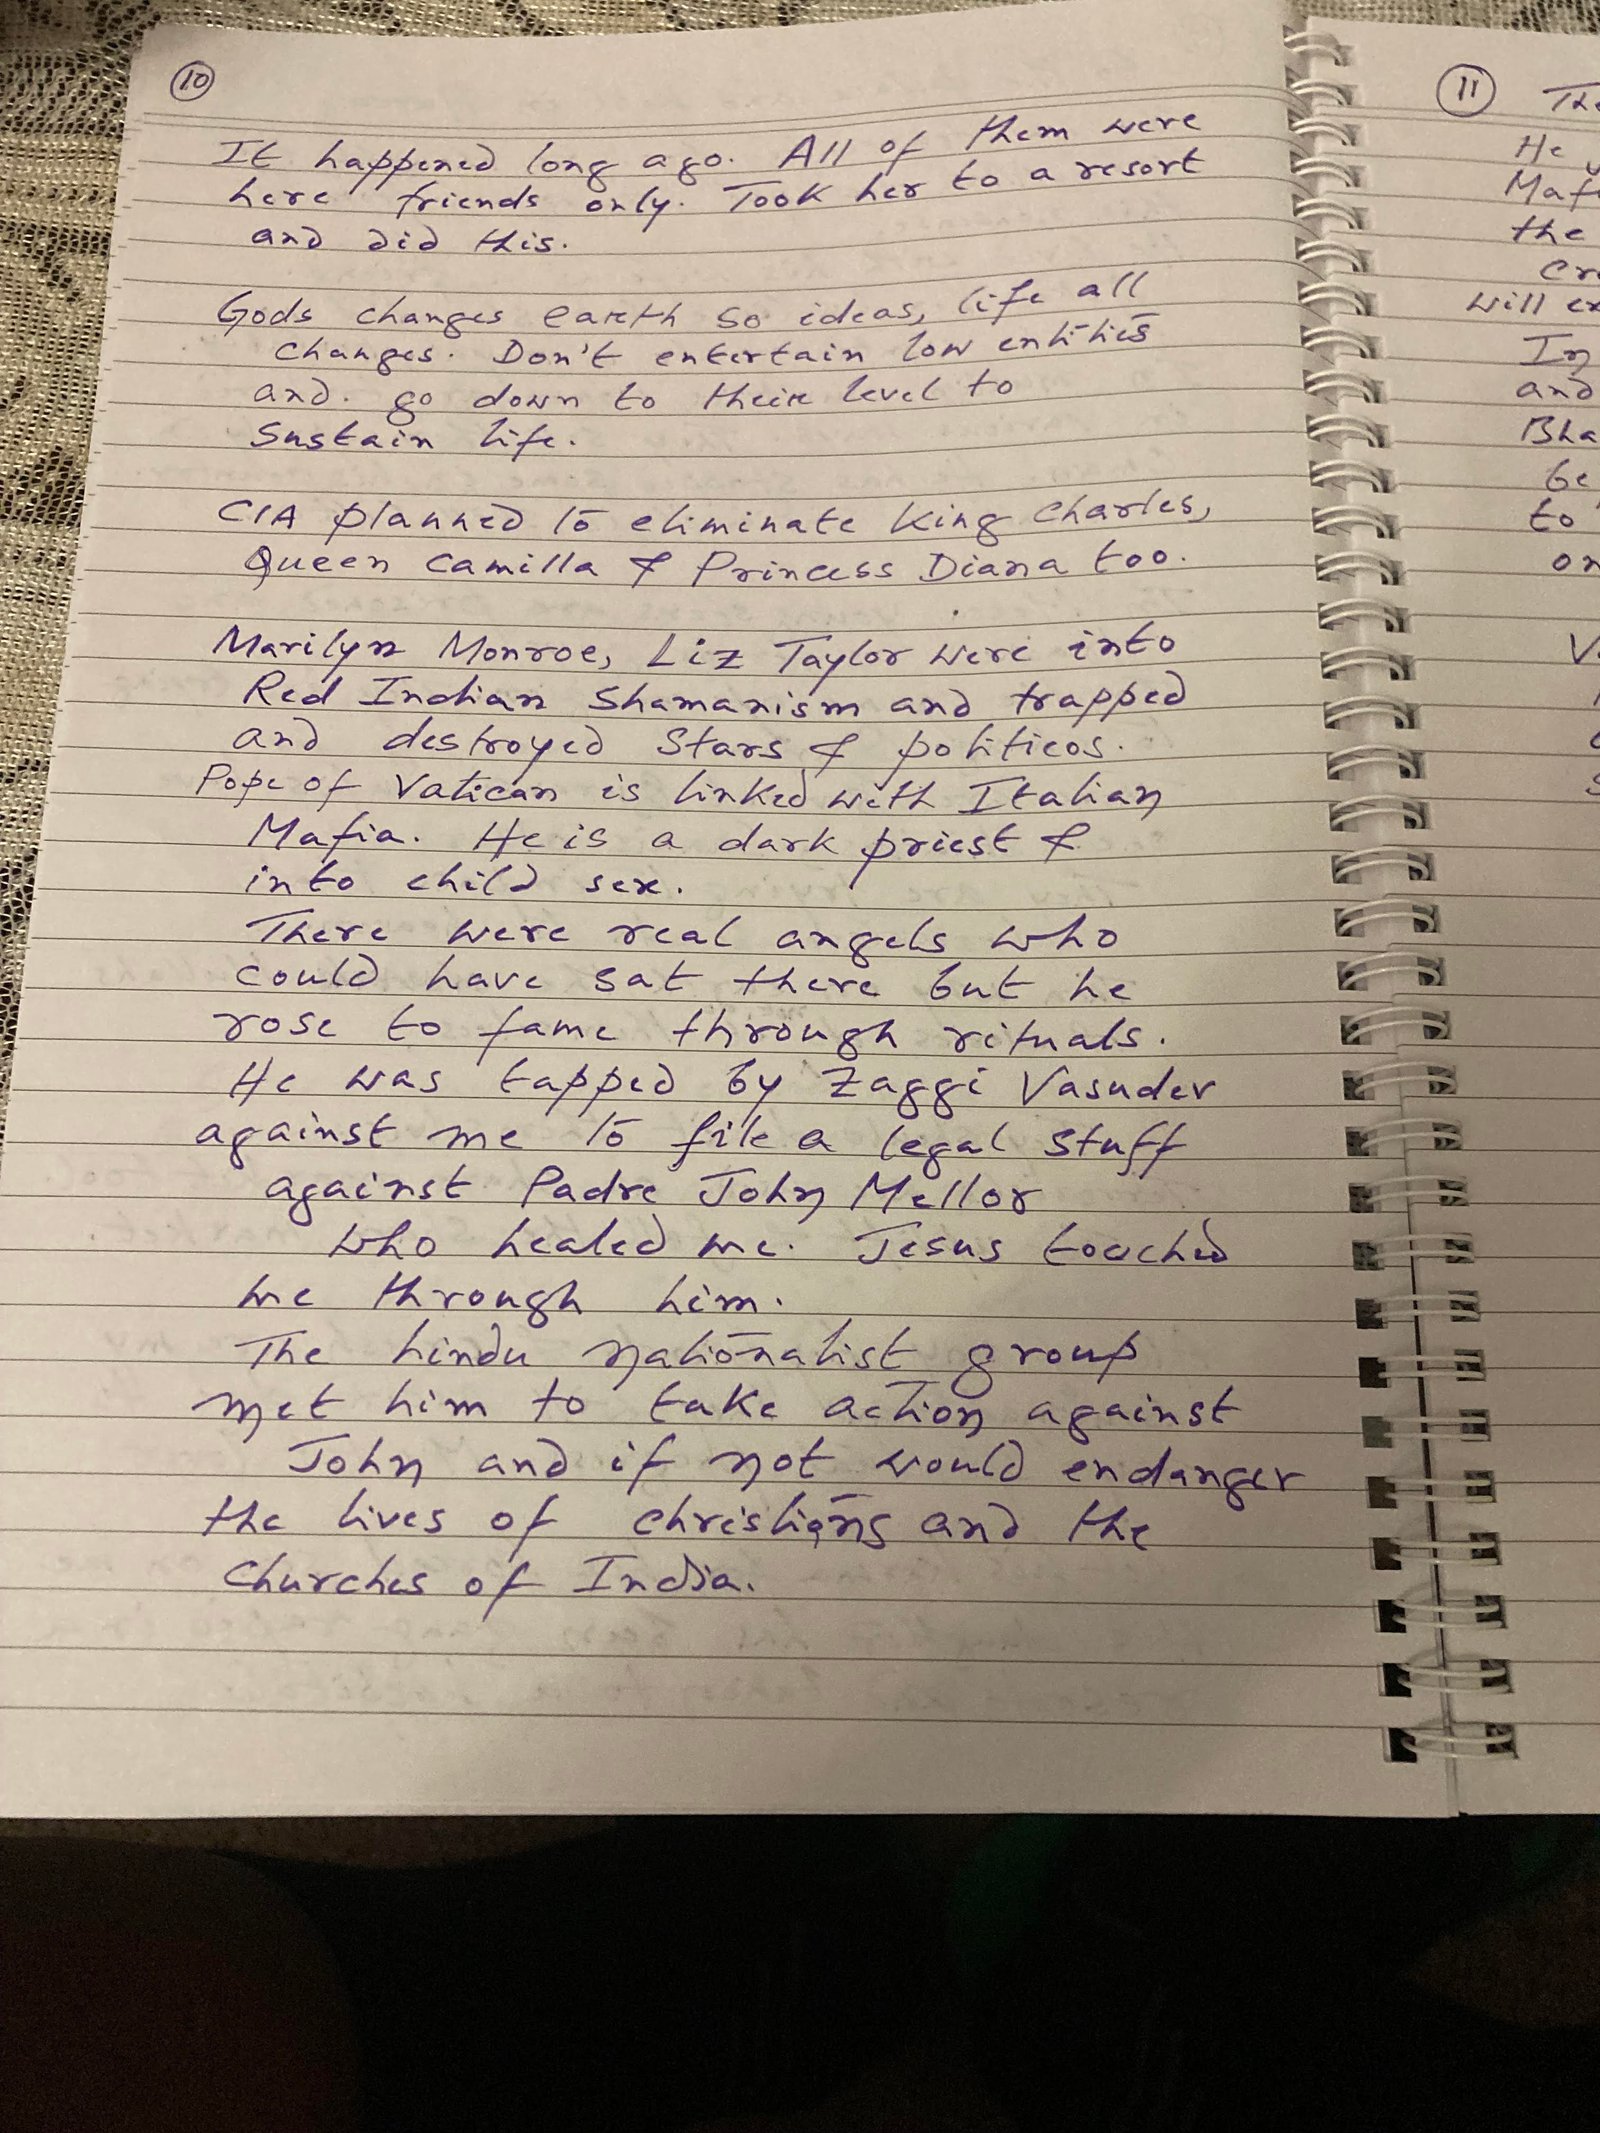 10
It happened long ago. All of them were
here friends only. Took her to a resort
and did this.
Gods changes earth so ideas, life all
changes. Don't entertain low entities
and. go down to their level to
sustain life.
CIA planned to eliminate King Charles,
Queen Camilla & Princess Diana too.
Marilyn Monroe, Liz Taylor were into
Red Indian Shamanism and trapped
and destroyed Stars & politicos.
Pope of Vatican is linked with Italian
Mafia. He is a dark priest &
into child sex.
There were real angels who
could have sat there but he
rose to fame through rituals.
He was tapped by Zaggi Vasudev
against me to file a legal stuff
against Padre John Mellor
who healed me. Jesus touched
me through him.
The hindu nationalist group
met him to take action against
John and if not would endanger
the lives of christians and the
churches of India.
11
He
the
will
and
be
to
on